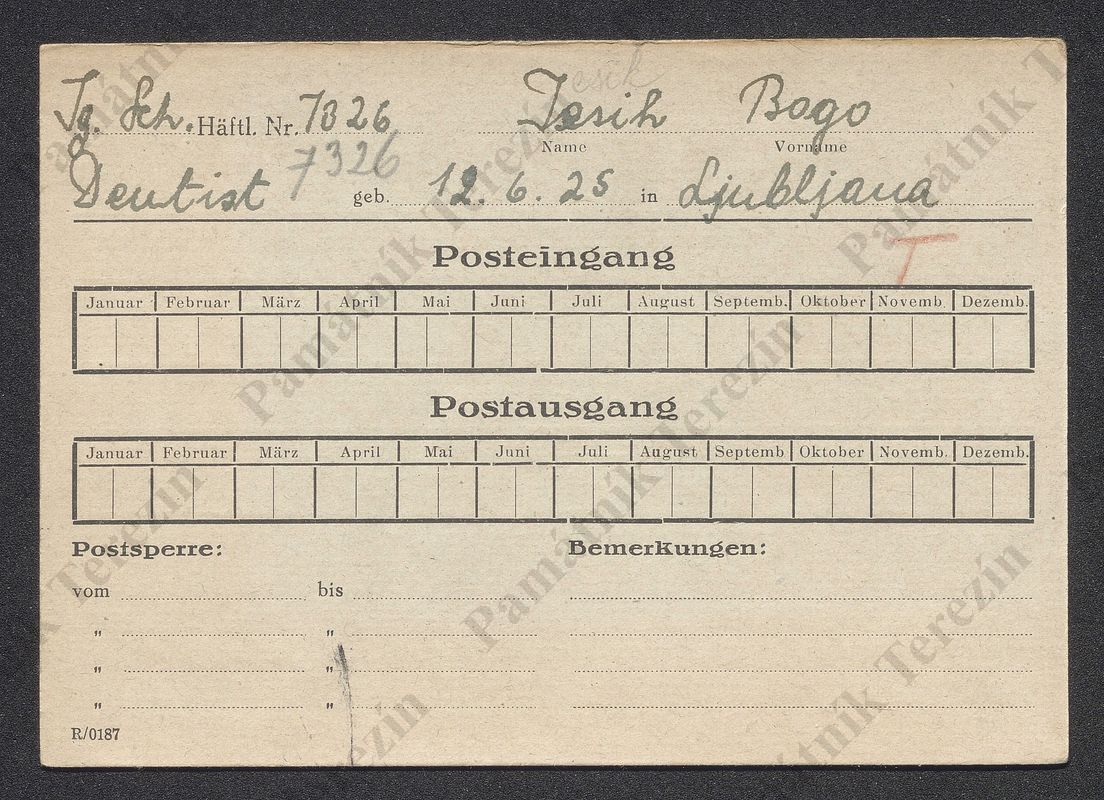 Jg. Sch. Häftl. Nr. 7326 Jesih Bogo
esik
Name Vorname
Dentist 7326 geb. 12. 6. 25 in Ljubljana
T
Posteingang
Januar Februar März April Mai Juni Juli August Septemb. Oktober Novemb. Dezemb.
Postausgang
Januar Februar März April Mai Juni Juli August Septemb Oktober Novemb. Dezemb.
Postsperre: Bemerkungen:
vom bis
" "
" "
" "
R/0187
Památník Terezín